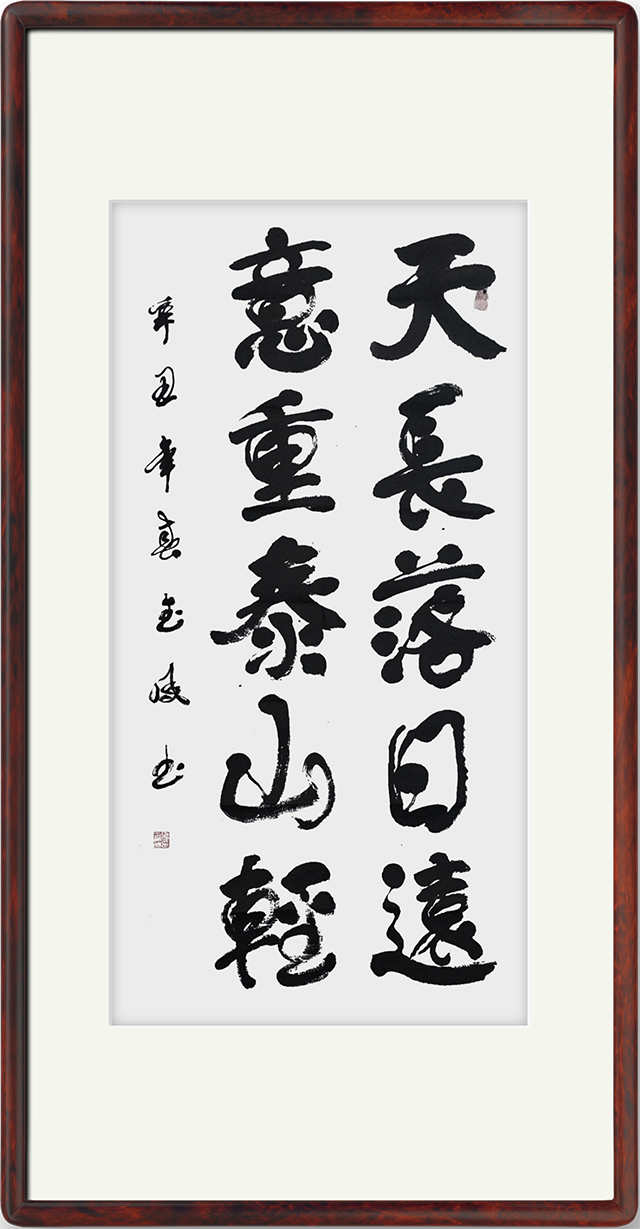 天長落日遠
意重泰山輕
辛丑年春玉成书